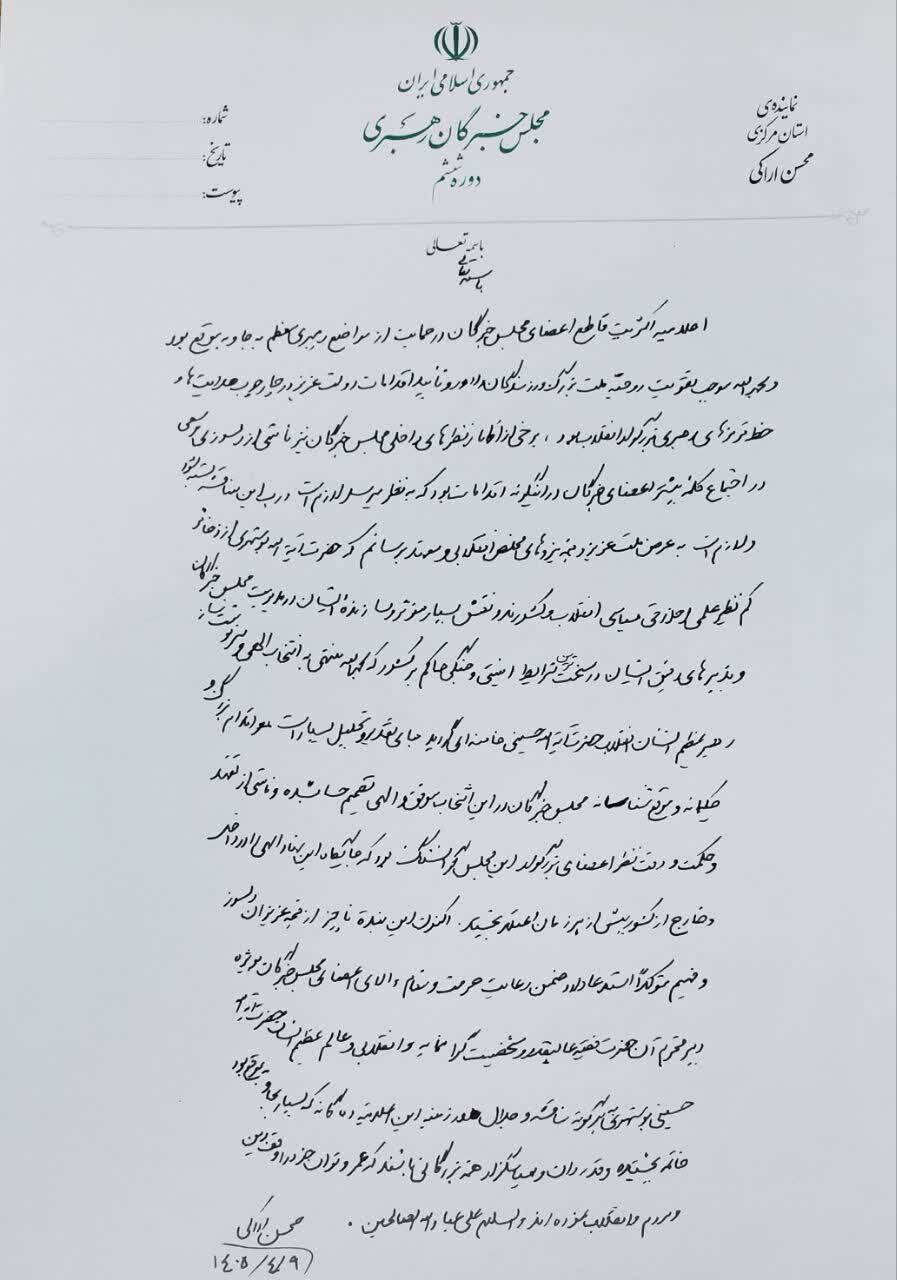 جمهوری اسلامی ایران
مجلس خبرگان رهبری
دوره ششم
نماینده‌ی
استان مرکزی
محسن اراکی
شماره:
تاریخ:
پیوست:
باسمه تعالی
باسمه تعالی
اعلامیه اکثریت قاطع اعضای مجلس خبرگان در حمایت از مواضع رهبری معظم به جا و به موقع بود
و بحمدالله موجب تقویت روحیه ملت بزرگ و رزمندگان دلاور و تأیید اقدامات دولت عزیز در چارچوب هدایت‌ها و
خط قرمزهای رهبری بزرگوار انقلاب بود، برخی از اظهارنظرهای داخلی مجلس خبرگان نیز ناشی از دلسوزی و سعی
در اجتماع کلمه بیشتر اعضای خبرگان در اینگونه اقدامات بود که به نظر میرسد لازم است درب این مناقشه بسته شود
و لازم است به عرض ملت عزیز و همه نیروهای مخلص انقلابی و متعهد برسانم که حضرت آیة الله بوشهری از ذخائر
کم نظیر علمی اخلاقی سیاسی انقلاب و کشورند و نقش بسیار مؤثر و سازنده ایشان در مدیریت مجلس خبرگان
و تدبیرهای دقیق ایشان در سخت ترین شرایط امنیتی و جنگی حاکم بر کشور که بحمدالله منتهی به انتخاب الهی و سرنوشت ساز
رهبر عظیم الشان انقلاب حضرت آیة الله حسینی خامنه‌ای گردید جای تقدیر و تجلیل بسیار است و اقدام بزرگ و
حکیمانه و موقع شناسانه مجلس خبرگان در این انتخاب موفق و الهی تصمیم حساب شده و ناشی از تعهد
و حکمت و دقت نظر اعضای بزرگوار این مجلس بود که جایگاه این نهاد الهی را در داخل
و خارج از کشور بیش از هر زمان اعتلا بخشید. اکنون این بنده ناچیز از همه عزیزان دلسوز
و فهیم مؤکداً استدعا دارد ضمن رعایت حرمت و مقام والای اعضای مجلس خبرگان بویژه
دبیر محترم آن حضرت فقیه عالیقدر و شخصیت گرانمایه و انقلابی و عالم عظیم الشأن حضرت آیة الله
حسینی بوشهری به هرگونه مناقشه و جدال در زمینه این اعلامیه که بسیار بجا و به موقع بود
خاتمه بخشیده و قدردان و سپاسگزار همه بزرگانی باشند که عمر و توان خود را وقف دین
و مردم و انقلاب نموده اند والسلام علی عباد الله الصالحین.
محسن اراکی
۱۴۰۵/۴/۹